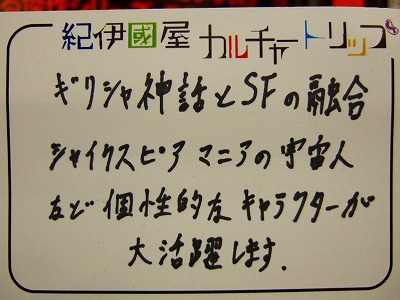 紀伊國屋 カルチャートリップ
ギリシャ神話とSFの融合
シャイクスピア マニアの宇宙人
など個性的なキャラクターが
大活躍します.